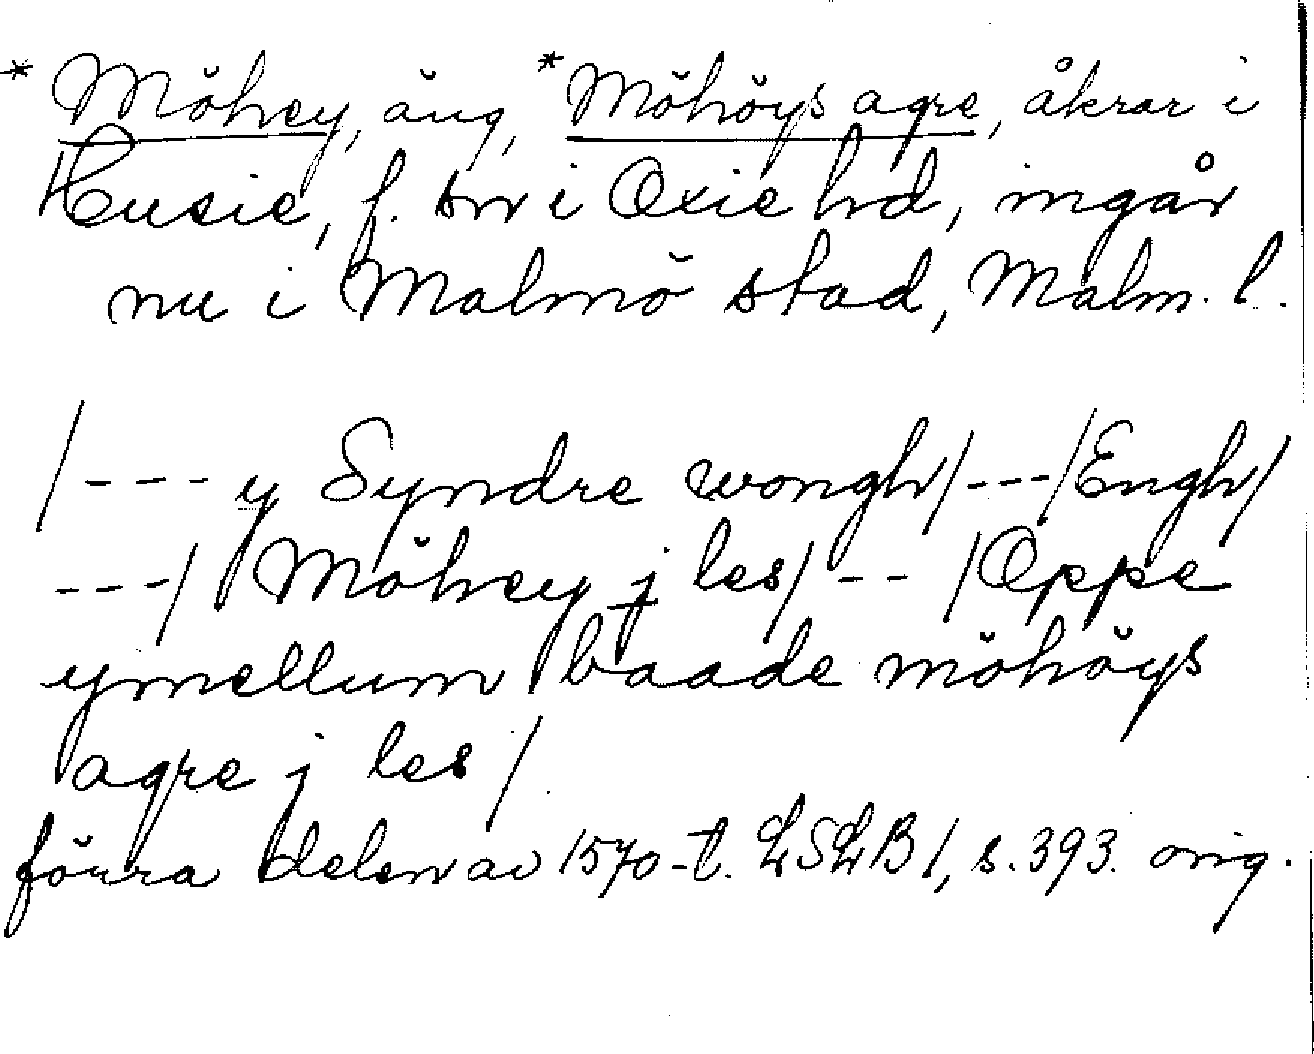 * Möhey, äng, * Möhöys agre, åkrar i
Husie, f. sn i Oxie hd, ingår
nu i Malmö stad, Malm. l.
/--- y Syndre wongh/---/Engh/
---/ Möhey j les/-- /Oppe
ymellum baade möhöys
agre j les/
förra delen av 1570-t. LSLB 1, s. 393. orig.